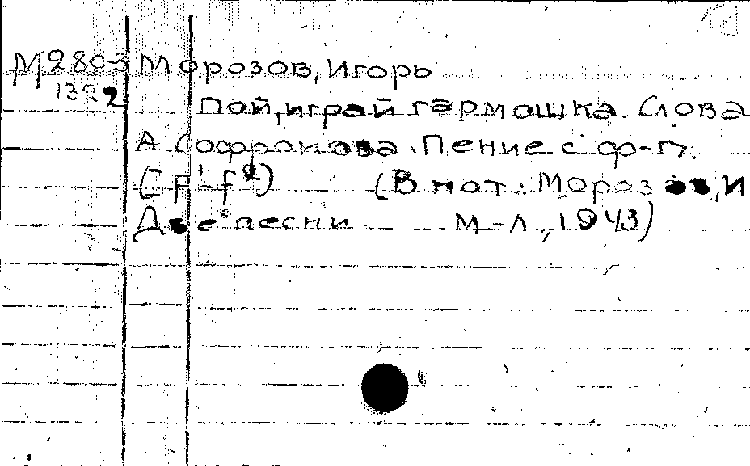 М 2803 Морозов, Игорь
1322 Пой, играй гармошка. Слова
А. Софронова. Пение с ф-п.
(F'-f²) (В нот.: Морозов, И
Две песни М-Л, 1943)